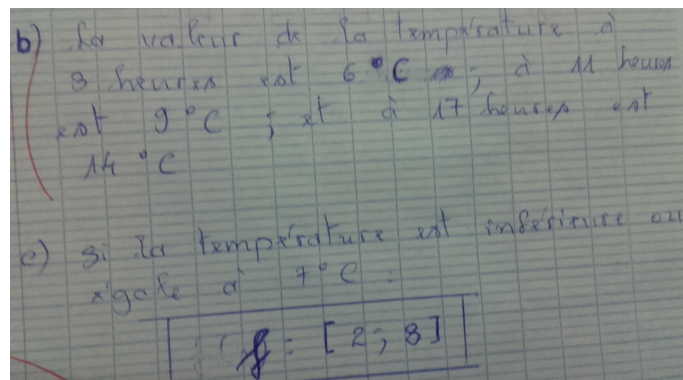 b) La valeur de la température à
3 heures est 6 °C ; à 11 heures
est 9 °C ; et à 17 heures est
14 °C
c) Si la température est inférieure ou
égale à 7 °C :
= [2 ; 8]